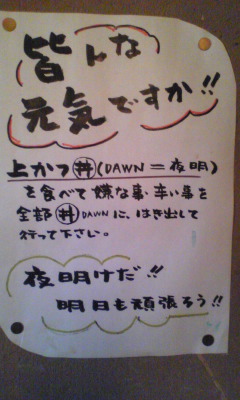 皆んな
元気ですか!!
上かつ丼(DAWN=夜明)
を食べて嫌な事・辛い事を
全部丼DAWNに、はき出して
行って下さい。
夜明けだ!!
明日も頑張ろう!!